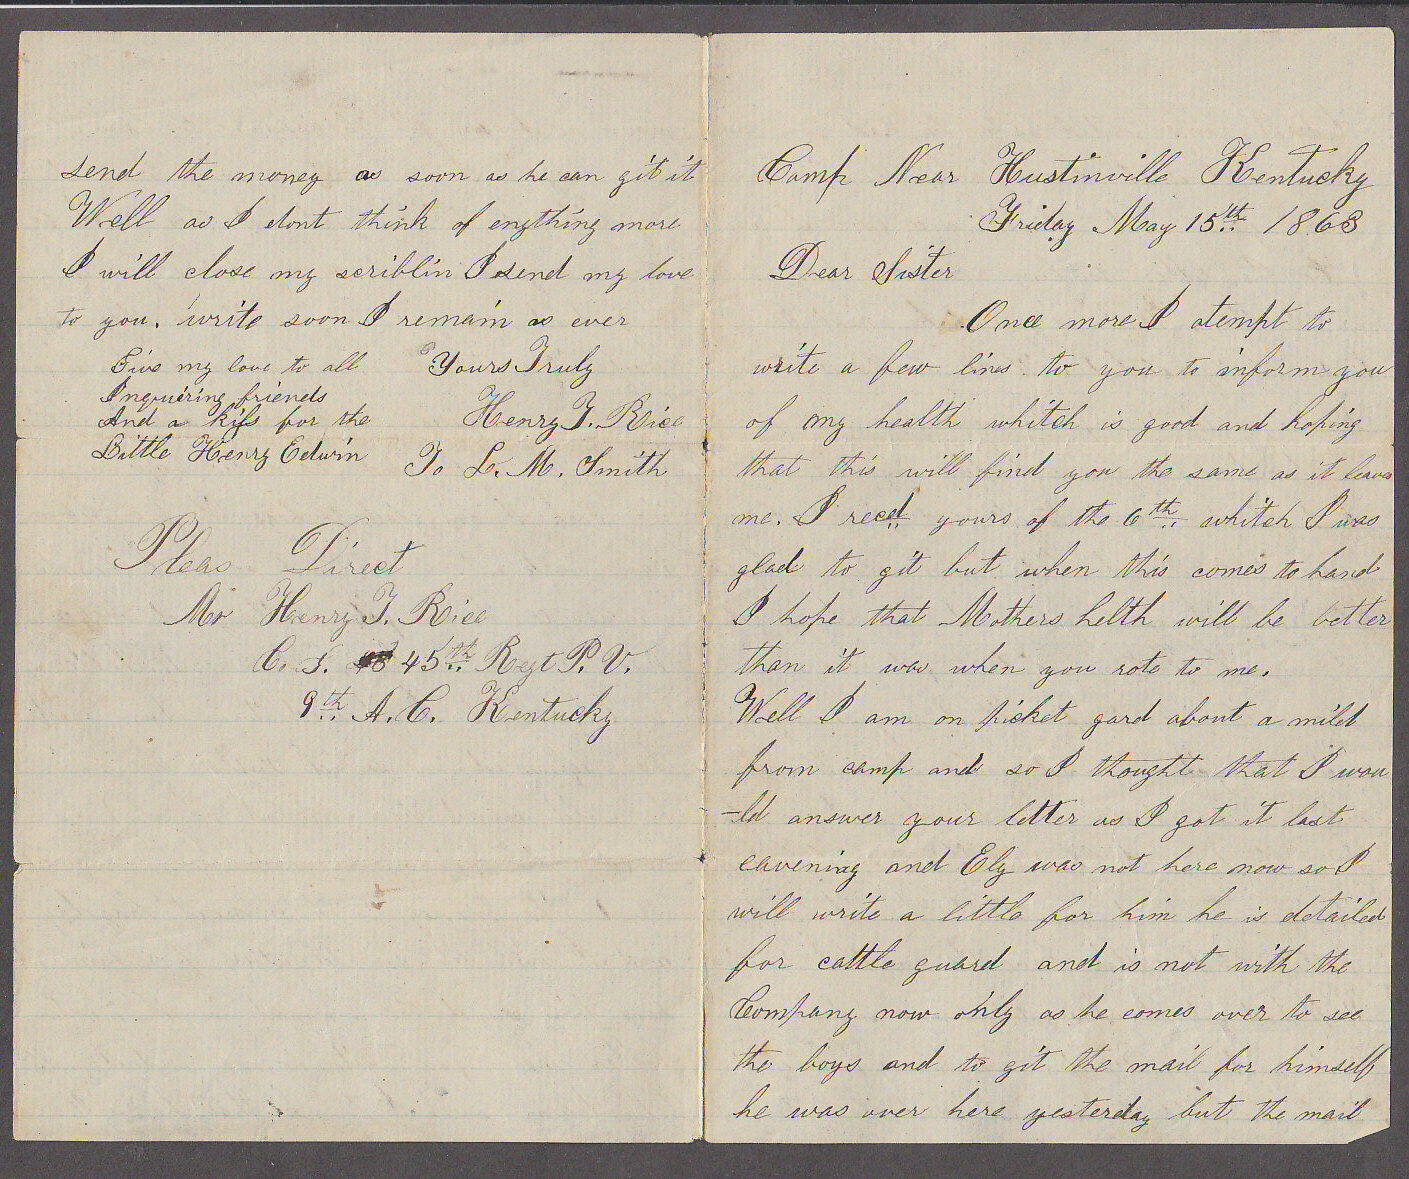 Camp Near Hustinville Kentucky
Friday May 15th 1863
Dear Sister
Once more I atempt to
write a few lines to you to inform you
of my health whitch is good and hoping
that this will find you the same as it leaves
me. I reced yours of the 6th whitch I was
glad to git but when this comes to hand
I hope that Mothers helth will be better
than it was when you rote to me.
Well I am on picket gard about a mild
from camp and so I thought that I wou
-ld answer your letter as I got it last
eavening and Ely was not here now so I
will write a little for him he is detailed
for cattle guard and is not with the
Company now only as he comes over to see
the boys and to git the mail for himself
he was over here yesterday but the mail
send the money as soon as he can git it
Well as I dont think of enything more
I will close my scriblin I send my love
to you. write soon I remain as ever
Give my love to all
Inquiring friends
And a kiss for the
Little Henry Edwin
Yours Truly
Henry T. Rice
To L. M. Smith
Pleas Direct
Mr Henry T. Rice
Co. I. 45th Regt P. V.
9th A. C. Kentucky